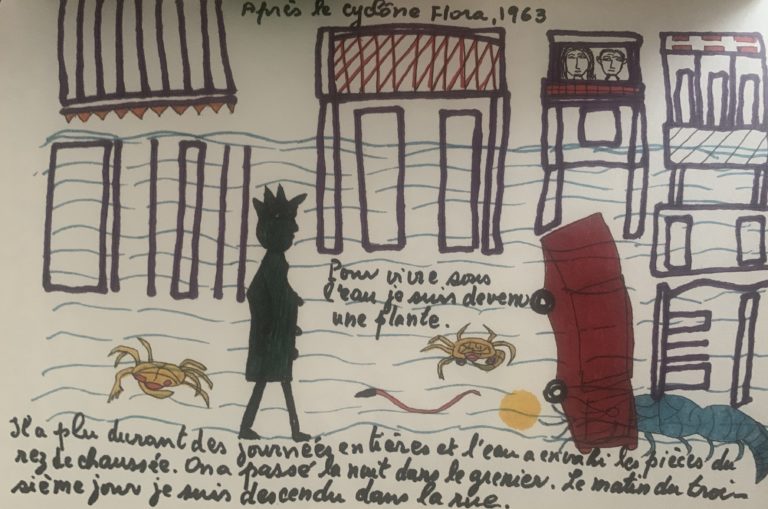 Après le cyclône Flora, 1963
Pour vivre sous
l'eau je suis devenu
une plante.
Il a plu durant des journées entières et l'eau a envahi les pièces du
rez de chaussée. On a passé la nuit dans le grenier. Le matin du troi-
sième jour je suis descendu dans la rue.